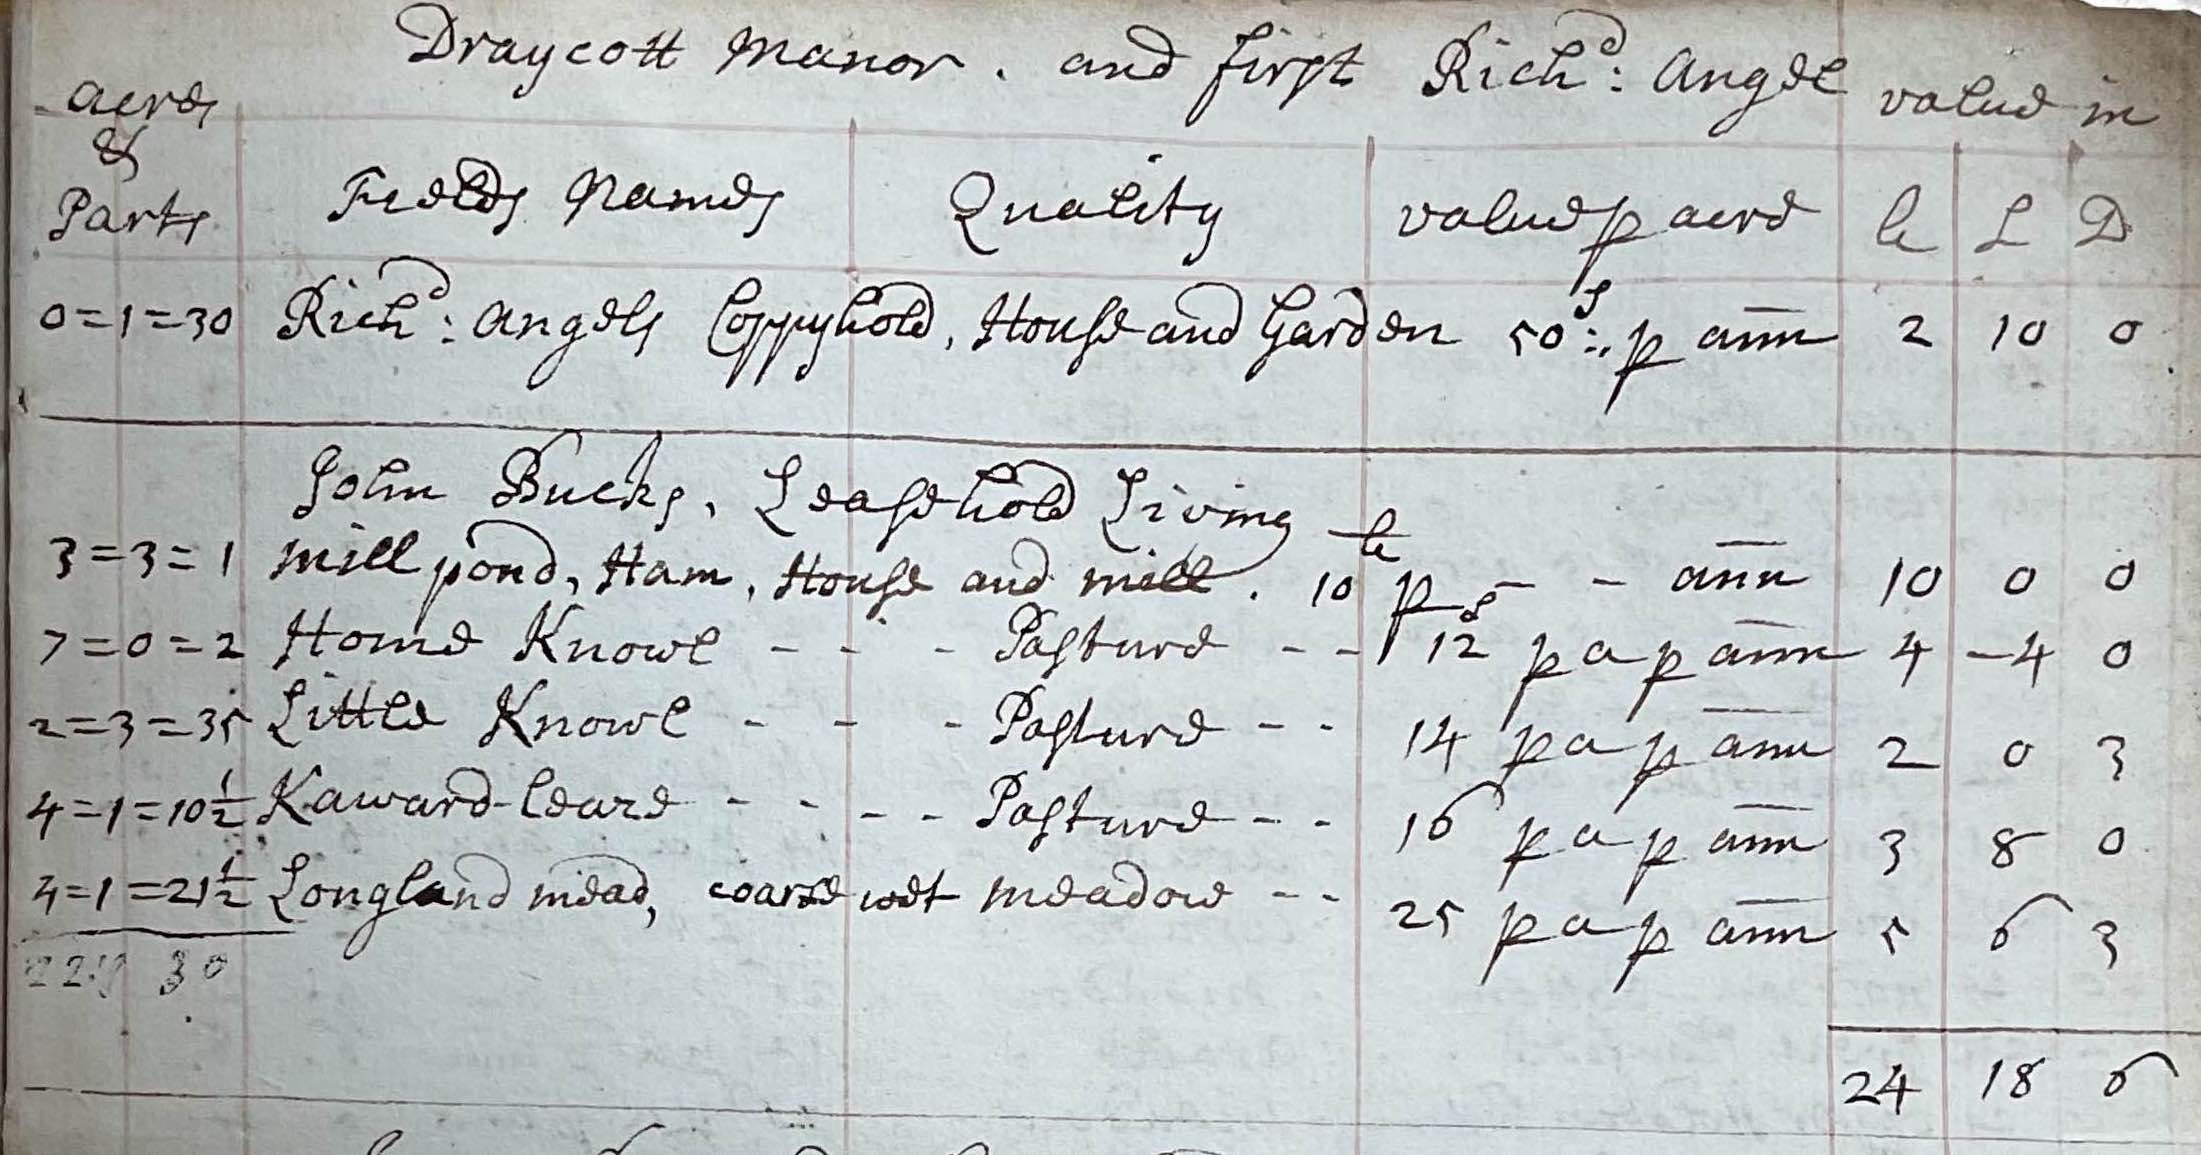 Draycott Manor . and first Rich^d: Angel
acres & Parts | Fields Names | Quality | value p acre | value in
£ S D
0=1=30 Rich^d: Angels Coppyhold, House and Garden 50^s :. p ann 2 10 0
John Bucks, Leasehold Living
3=3=1 Mill pond, Ham, House and mill . 10^£ p - - ann 10 0 0
7=0=2 Home Knowl - - - Pasture - - 12^s p a p ann 4 - 4 0
2=3=35 Little Knowl - - - Pasture - - 14 p a p ann 2 0 3
4=1=10½ Kaward-leaze - - - - Pasture - - 16 p a p ann 3 8 0
4=1=21½ Longland mead, coarse wet meadow - - 25 p a p ann 5 6 3
30
24 18 6